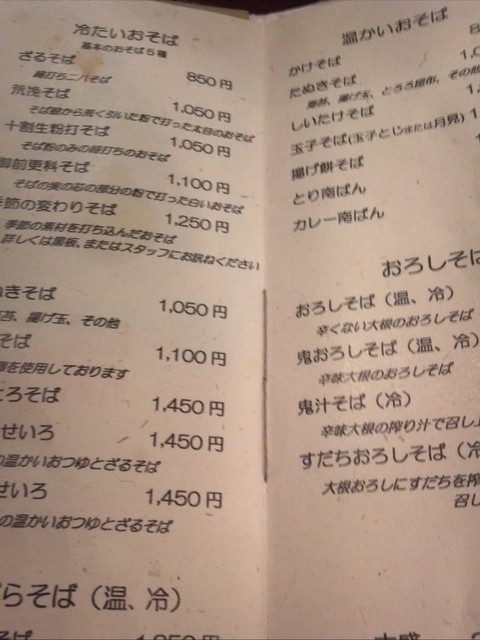 冷たいおそば
基本のおそば5種
ざるそば 850円
細打ち二八そば
荒挽そば 1,050円
そば殻から荒く引いた粉で打った太目のおそば
十割生粉打そば 1,050円
そば粉のみの細打ちのおそば
御前更科そば 1,100円
そばの実の芯の部分の粉で打った白いおそば
季節の変わりそば 1,250円
季節の素材を打ち込んだおそば
詳しくは黒板、またはスタッフにお訊ねください
ぬきそば 1,050円
揚げ玉、その他
そば 1,100円
を使用しております
ろそば 1,450円
せいろ 1,450円
の温かいおつゆとざるそば
せいろ 1,450円
の温かいおつゆとざるそば
らそば（温、冷）
温かいおそば
かけそば
たぬきそば
揚げ玉、とろろ昆布、その他
しいたけそば
玉子そば(玉子とじまたは月見)
揚げ餅そば
とり南ばん
カレー南ばん
おろしそば
おろしそば（温、冷）
辛くない大根のおろしそば
鬼おろしそば（温、冷）
辛味大根のおろしそば
鬼汁そば（冷）
辛味大根の搾り汁で召し上
すだちおろしそば（冷
大根おろしにすだちを搾
召し
大盛